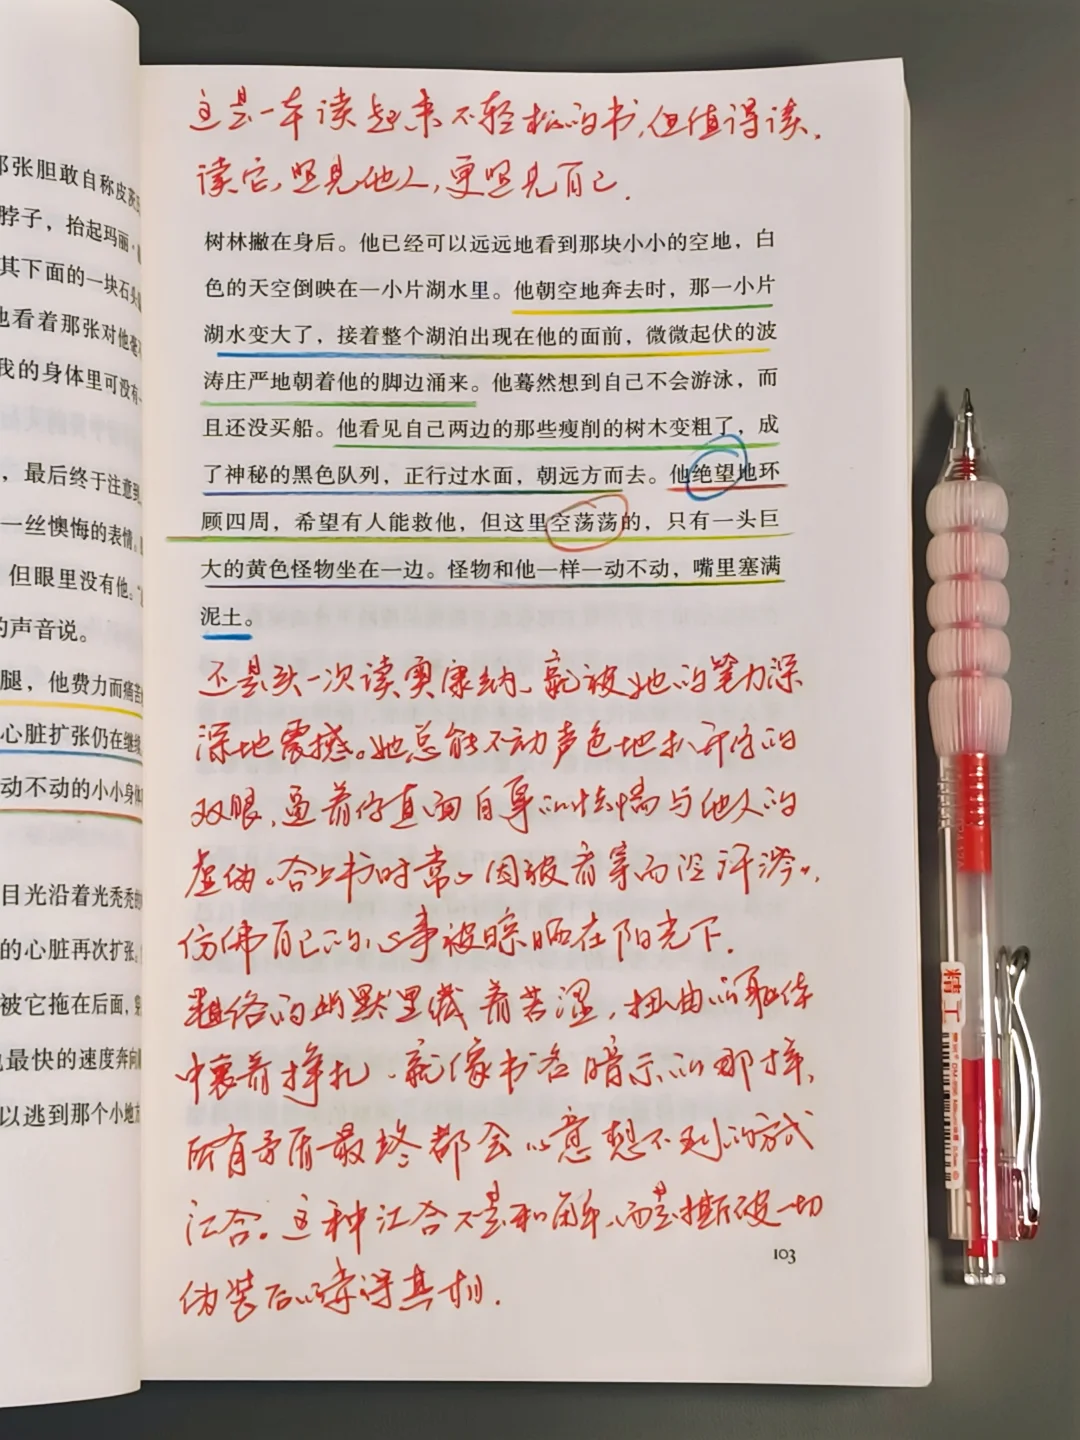 这是一本读起来不轻松的书,但值得读.
读它,照见他人,更照见自己.
树林撇在身后。他已经可以远远地看到那块小小的空地，白
色的天空倒映在一小片湖水里。他朝空地奔去时，那一小片
湖水变大了，接着整个湖泊出现在他的面前，微微起伏的波
涛庄严地朝着他的脚边涌来。他蓦然想到自己不会游泳，而
且还没买船。他看见自己两边的那些瘦削的树木变粗了，成
了神秘的黑色队列，正行过水面，朝远方而去。他绝望地环
顾四周，希望有人能救他，但这里空荡荡的，只有一头巨
大的黄色怪物坐在一边。怪物和他一样一动不动，嘴里塞满
泥土。
还是头一次读奥康纳、就被她的笔力深
深地震撼。她总能不动声色地扒开你的
双眼,逼着你直面自身的怯懦与他人的
虚伪。合上书时常常因被看穿而冷汗涔涔,
仿佛自己的心事被晾晒在阳光下.
粗俗的幽默里藏着苦涩,扭曲的躯体
中裹着挣扎、就像书名暗示的那样,
所有矛盾最终都会以意想不到的方式
汇合。这种汇合不是和解、而是撕破一切
伪装后的真相.
103
那张胆敢自称皮
脖子，抬起玛丽·
其下面的一块石头
他看着那张对他毫
我的身体里可没有一
，最后终于注意到
一丝懊悔的表情。
但眼里没有他。"
的声音说。
腿，他费力而痛苦
心脏扩张仍在继续
动不动的小小身体
目光沿着光秃秃的
的心脏再次扩张。
被它拖在后面，
最快的速度奔向
以逃到那个小地方
精工